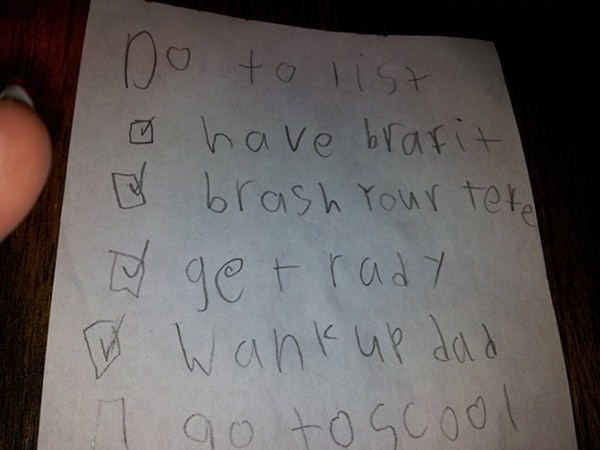 Do to list
have brafit
brash Your tete
get rady
Wank up dad
go to scool